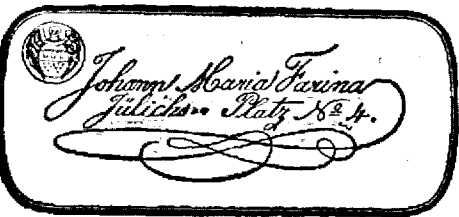 Johann Maria Farina
Jülichs Platz No 4.